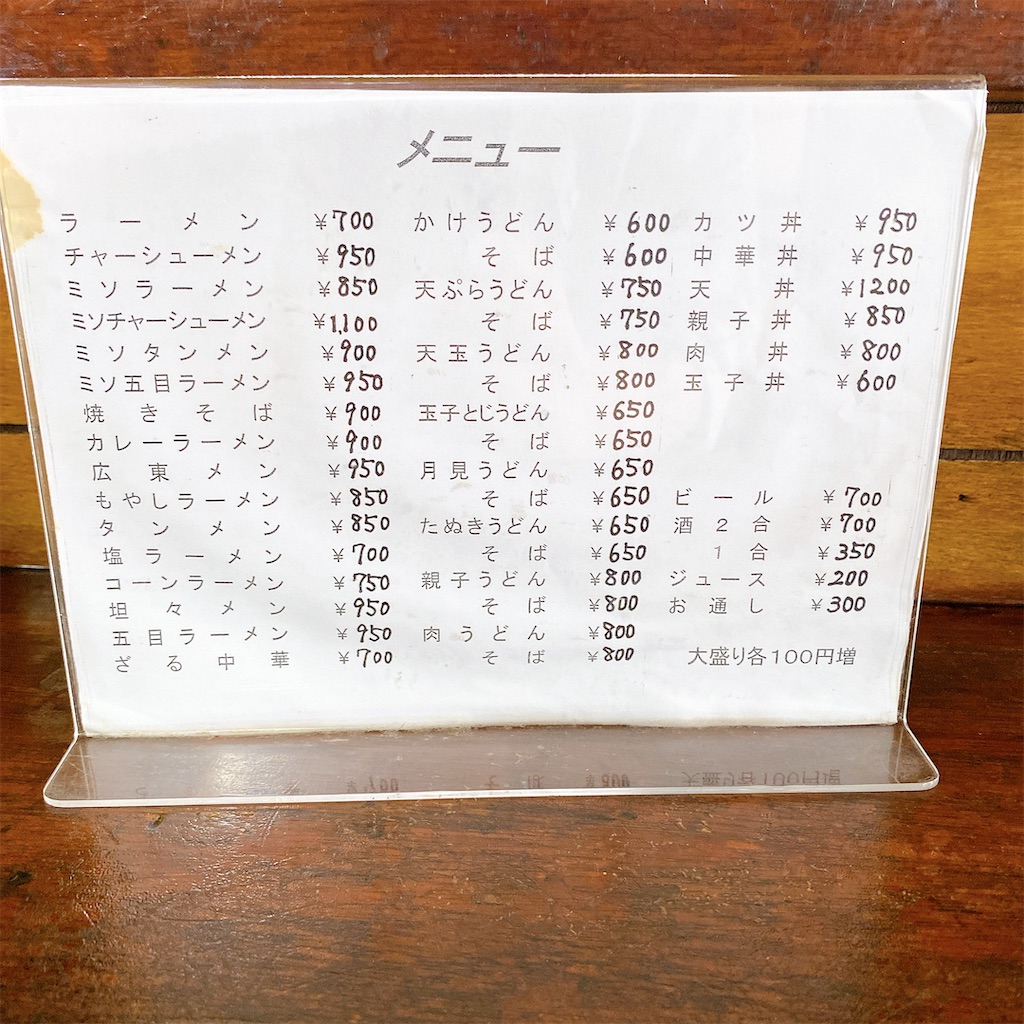 メニュー
ラーメン ¥700
チャーシューメン ¥950
ミソラーメン ¥850
ミソチャーシューメン ¥1,100
ミソタンメン ¥900
ミソ五目ラーメン ¥950
焼きそば ¥900
カレーラーメン ¥900
広東メン ¥950
もやしラーメン ¥850
タンメン ¥850
塩ラーメン ¥700
コーンラーメン ¥750
坦々メン ¥950
五目ラーメン ¥950
ざる中華 ¥700
かけうどん ¥600
そば ¥600
天ぷらうどん ¥750
そば ¥750
天玉うどん ¥800
そば ¥800
玉子とじうどん ¥650
そば ¥650
月見うどん ¥650
そば ¥650
たぬきうどん ¥650
そば ¥650
親子うどん ¥800
そば ¥800
肉うどん ¥800
そば ¥800
カツ丼 ¥950
中華丼 ¥950
天丼 ¥1200
親子丼 ¥850
肉丼 ¥800
玉子丼 ¥600
ビール ¥700
酒2合 ¥700
1合 ¥350
ジュース ¥200
お通し ¥300
大盛り各100円増